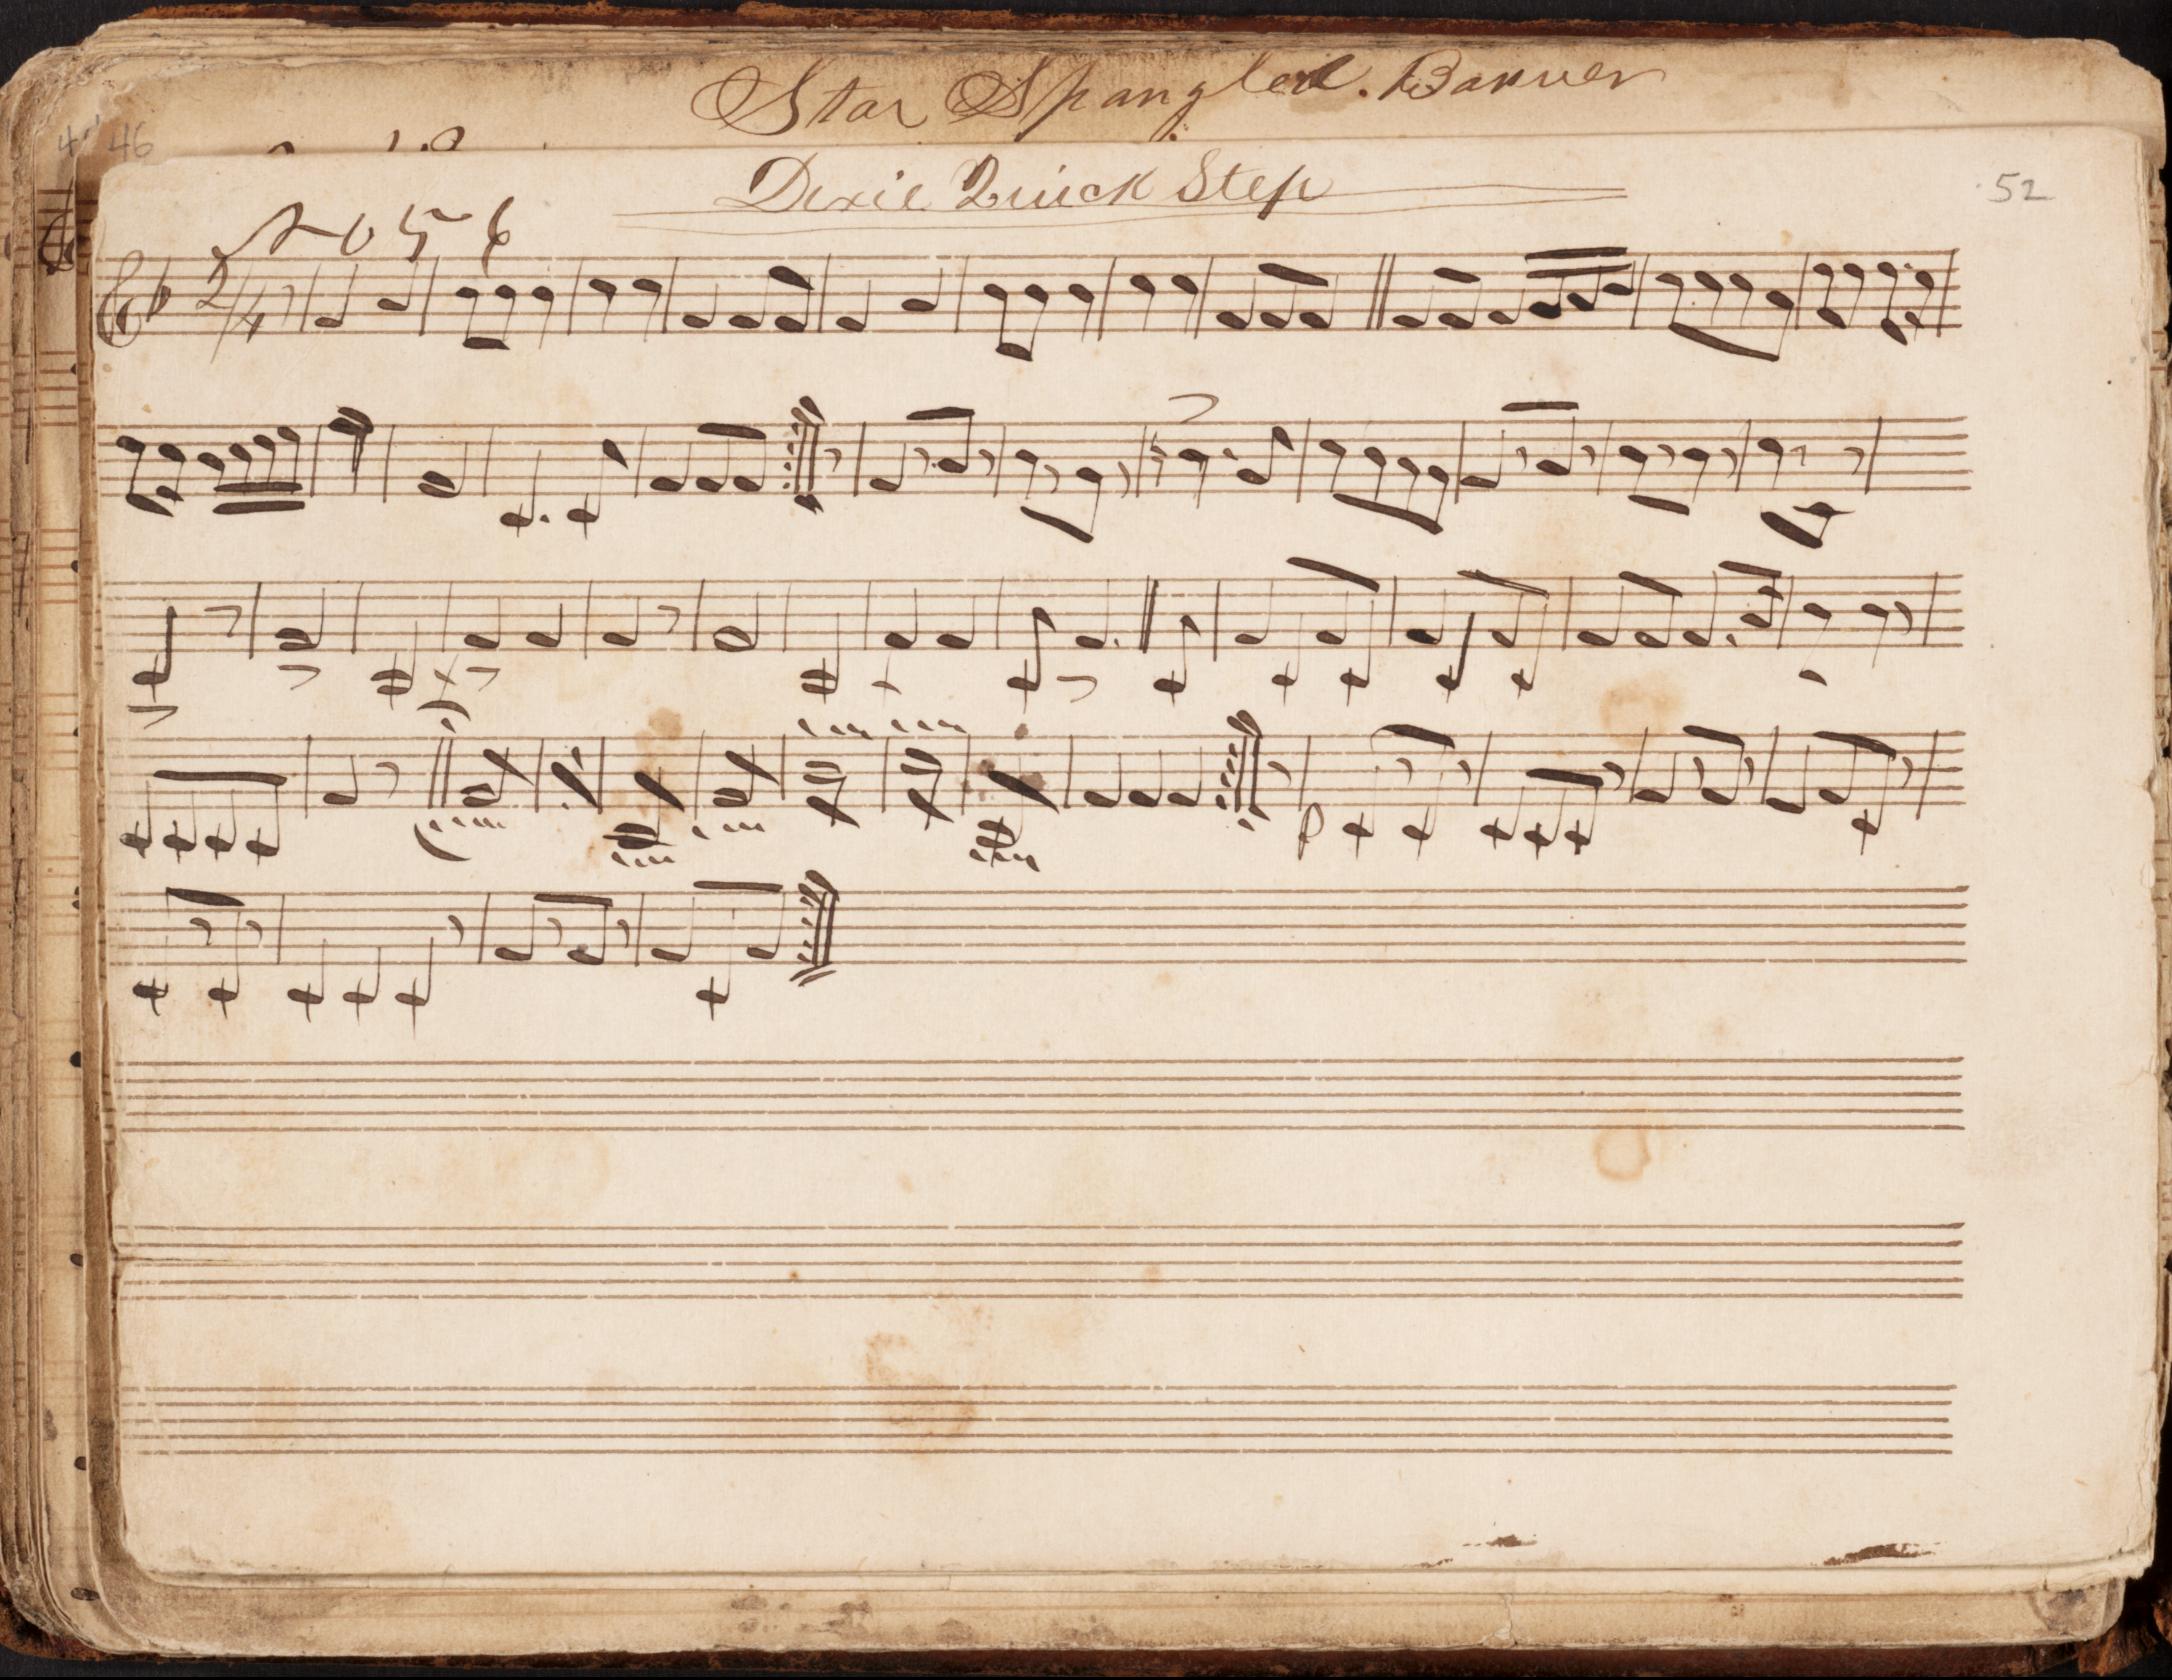 Star Spangled. Banner
46
Dixie Quick Step
52
No 56
2/4